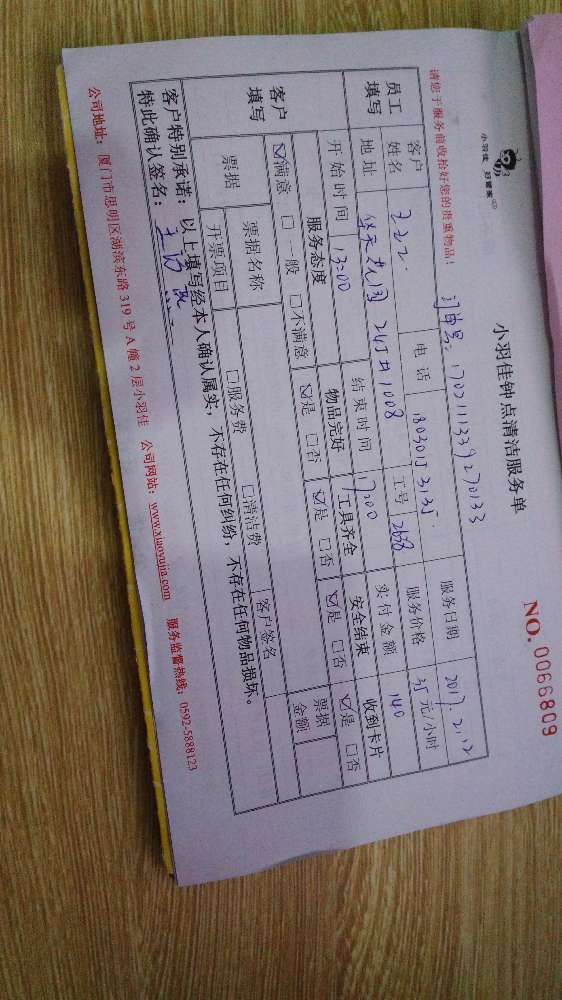 小羽佳 好管家
小羽佳钟点清洁服务单
NO. 0066809
请您于服务前收拾好您的贵重物品!
订单号: 1702111339270133
员工填写 客户姓名 电话 服务日期 2017.2.12
地址 24J#1008 工号 2658 服务价格 35元/小时
开始时间 13:00 结束时间 17:00 实付金额 140
客户填写 服务态度 物品完好 工具齐全 安全结束 收到卡片
☑满意 □一般 □不满意 ☑是 □否 ☑是 □否 ☑是 □否 ☑是 □否
票据 票据名称 客户签名 票据金额
开票项目 □服务费 □清洁费
客户特别承诺:以上填写经本人确认属实,不存在任何纠纷,不存在任何物品损坏。
特此确认签名:
公司地址:厦门市思明区湖滨东路319号A幢2层小羽佳 公司网站:www.xiaoyujia.com 服务监督热线:0592-5888123